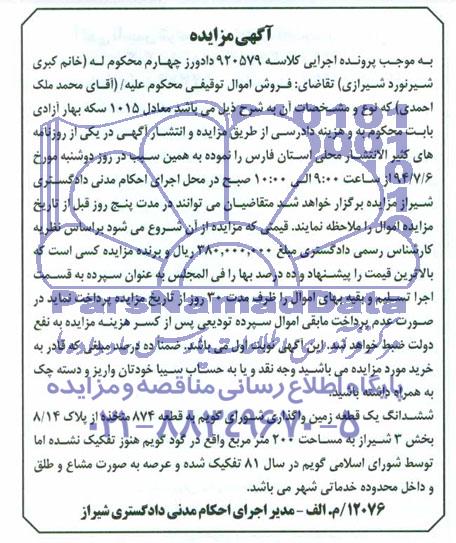 آگهی مزایده
به موجب پرونده اجرایی کلاسه ۹۲۰۵۷۹ دادورز چهارم محکوم له (خانم کبری
شیرنورد شیرازی) تقاضای: فروش اموال توقیفی محکوم علیه/ (آقای محمد ملک
احمدی) که نوع و مشخصات آن به شرح ذیل می باشد معادل ۱۰۱۵ سکه بهار آزادی
بابت محکوم به و هزینه دادرسی از طریق مزایده و انتشار آگهی در یکی از روزنامه
های کثیر الانتشار محلی استان فارس را نموده به همین سبب در روز دوشنبه مورخ
۹۴/۷/۶ از ساعت ۹:۰۰ الی ۱۰:۰۰ صبح در محل اجرای احکام مدنی دادگستری
شیراز مزایده برگزار خواهد شد متقاضیان می توانند در مدت پنج روز قبل از تاریخ
مزایده اموال را ملاحظه نمایند. قیمتی که مزایده از آن شروع می شود براساس نظریه
کارشناس رسمی دادگستری مبلغ ۳۸۰,۰۰۰,۰۰۰ ریال و برنده مزایده کسی است که
بالاترین قیمت را پیشنهاد و ده درصد بها را فی المجلس به عنوان سپرده به قسمت
اجرا تسلیم و بقیه بهای اموال را ظرف مدت ۳۰ روز از تاریخ مزایده پرداخت نماید در
صورت عدم پرداخت مابقی اموال سپرده تودیعی پس از کسر هزینه مزایده به نفع
دولت ضبط خواهد شد. این آگهی نوبت اول می باشد. ضمنا ده درصد مبلغی که قادر به
خرید مورد مزایده می باشید وجه نقد و یا به حساب سیبا خودتان واریز و دسته چک
به همراه داشته باشید.
ششدانگ یک قطعه زمین واگذاری شورای گویم به قطعه ۸۷۴ متخذه از پلاک ۸/۱۴
بخش ۳ شیراز به مساحت ۲۰۰ متر مربع واقع در گود گویم هنوز تفکیک نشده اما
توسط شورای اسلامی گویم در سال ۸۱ تفکیک شده و عرصه به صورت مشاع و طلق
و داخل محدوده خدماتی شهر می باشد.
۱۲۰۷۶/م.الف - مدیر اجرای احکام مدنی دادگستری شیراز
ParsNamadData
پایگاه اطلاع رسانی مناقصه و مزایده
۰۲۱-۸۸۳۴۹۶۷۰-۵